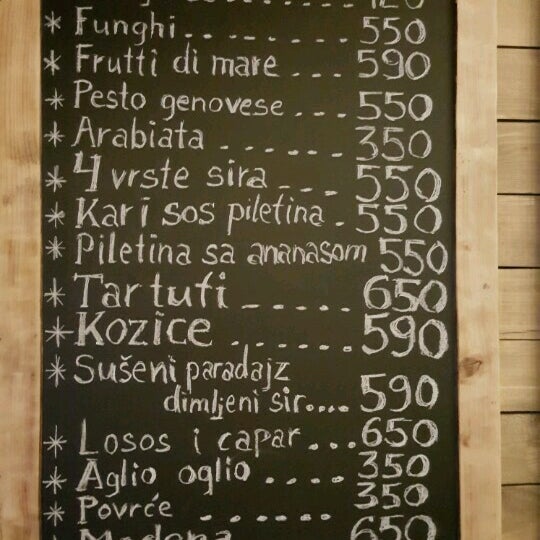 * Funghi........ 550
* Frutti di mare .... 590
* Pesto genovese ... 550
* Arabiata ...... 350
* 4 vrste sira .... 550
* Kari sos piletina . 550
* Piletina sa ananasom 550
* Tartufi ..... 650
* Kozice ....... 590
* Sušeni paradajz
dimljeni sir.... 590
* Losos i capar ... 650
* Aglio oglio .... 350
* Povrće ...... 350
650